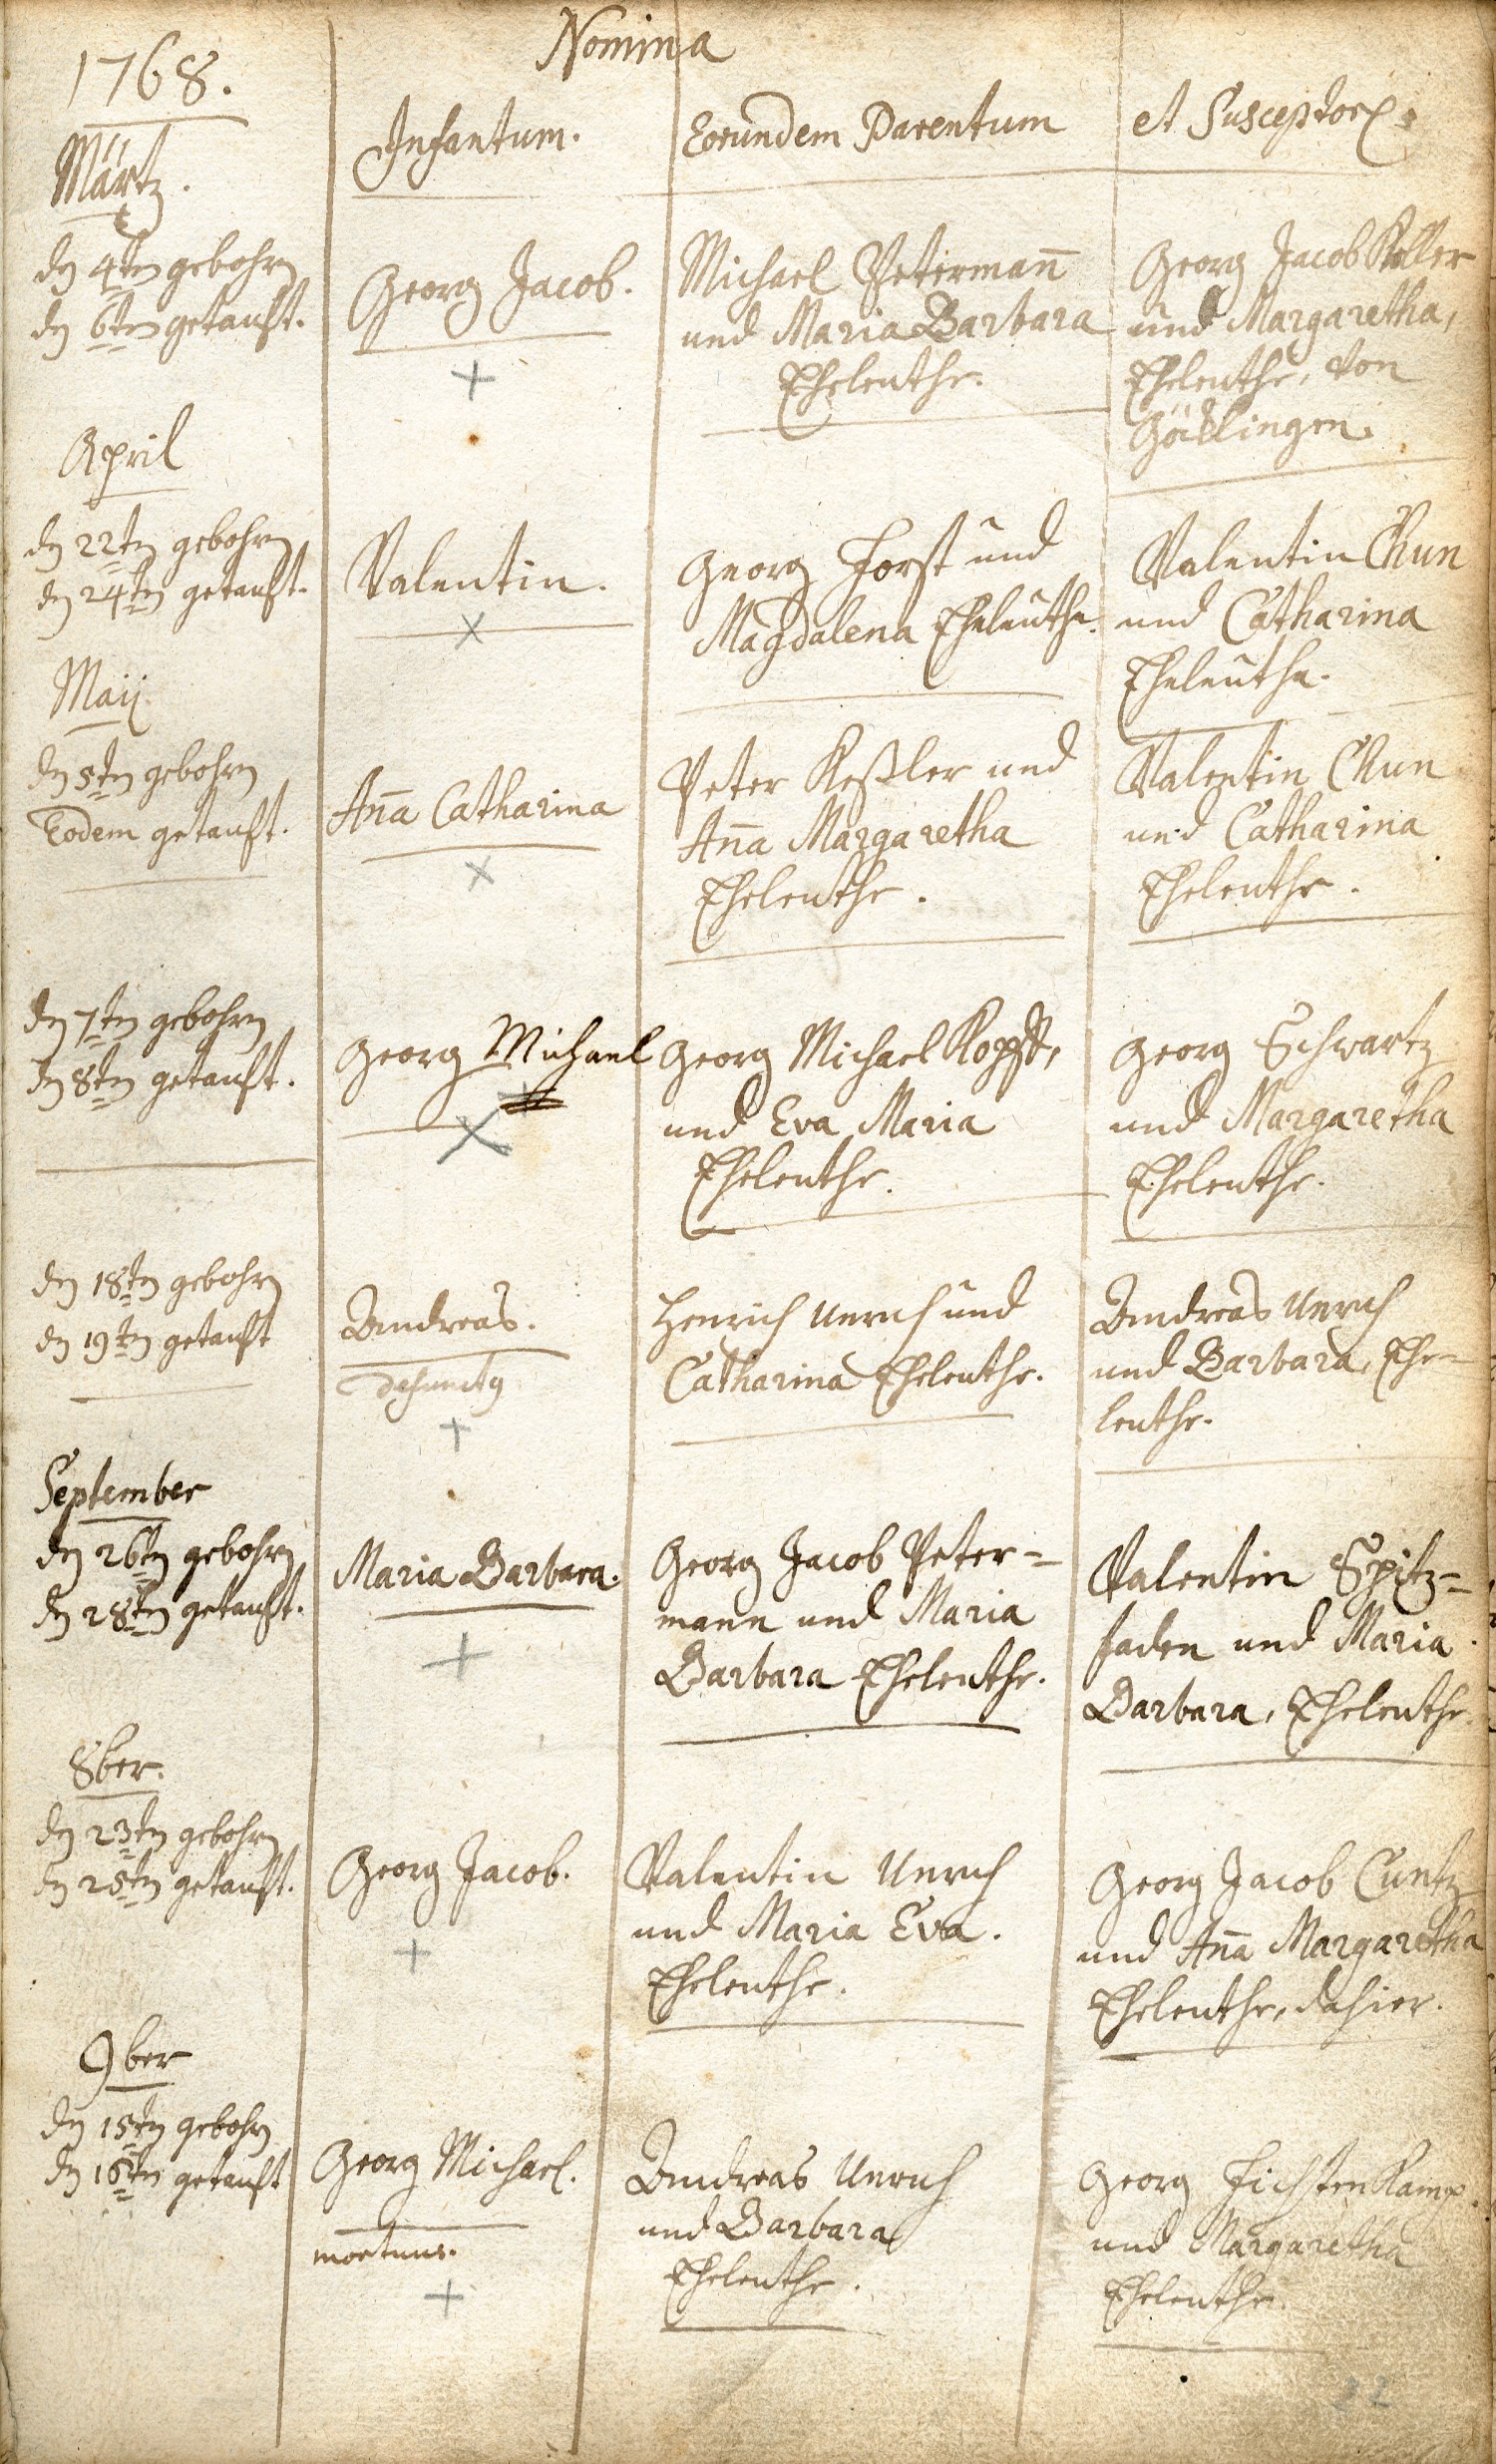 1768.
Nomina
Infantum.
Eorundem Parentum
et Susceptor.
Märtz.
den 4ten gebohrn
den 6ten getauft.
Georg Jacob.
Michael Petermañ
und Maria Barbara
Eheleuthe.
Georg Jacob Keller
und Margaretha,
Eheleuthe, von
Göcklingen.
April
den 22ten gebohrn
den 24ten getauft.
Valentin.
Georg Forst und
Magdalena Eheleuthe.
Valentin Chun
und Catharina
Eheleuthe.
Maij
den 5ten gebohrn
Eodem getauft.
Aña Catharina
Peter Keßler und
Aña Margaretha
Eheleuthe.
Valentin Chun
und Catharina
Eheleuthe.
den 7ten gebohrn
den 8ten getauft.
Georg Michael
Georg Michael Kopff,
und Eva Maria
Eheleuthe.
Georg Schwartz
und Margaretha
Eheleuthe.
den 18ten gebohrn
den 19ten getauft
Andreas.
defunctg
Henrich Unruh und
Catharina Eheleuthe.
Andreas Unruh
und Barbara, Ehe=
leuthe.
September
den 26ten gebohrn
den 28ten getauft.
Maria Barbara.
Georg Jacob Peter=
mann und Maria
Barbara Eheleuthe.
Valentin Spitz=
faden und Maria
Barbara, Eheleuthe.
8ber.
den 23ten gebohrn
den 25ten getauft.
Georg Jacob.
Valentin Unruh
und Maria Eva.
Eheleuthe.
Georg Jacob Cuntz
und Aña Margaretha
Eheleuthe, dahier.
9ber
den 15ten gebohrn
den 16ten getauft
Georg Michael.
mortuus.
Andreas Unruh
und Barbara
Eheleuthe.
Georg Fichtenkamp.
und Margaretha
Eheleuthe.